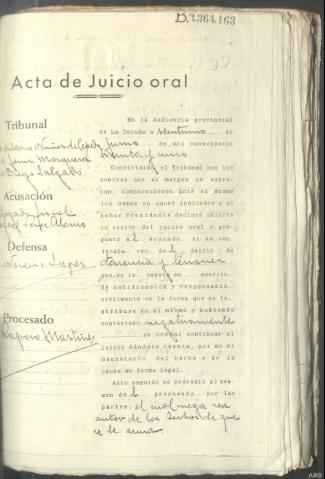 B.3864.163
Acta de Juicio oral
Tribunal
Nuñez de Cepeda
Mosquera
Diego Salgado
Acusación
Perez Alamo
Defensa
Lopez
Procesado
Martinez
En la Audiencia provincial
de La Coruña a veintiuno de
Junio de mil novecientos
treinta y uno
Constituido el Tribunal con los
señores que al margen se expre-
san, comparecieron ante el mismo
los demás en aquel indicados y el
señor Presidente declaró abierta
la sesión del juicio oral y pre-
guntó al acusado si se con-
fesaba reo del delito de
y lesiones
que se le imputa en escrito
de calificación y responsable
civilmente en la forma que se le
atribuye en el mismo y habiendo
contestado negativamente
se ordenó continuar el
juicio dándose cuenta, por mí el
Secretario del hecho y de la
causa en forma legal.
Acto seguido se procedió al exa-
men del procesado por las
partes. el cual niega sea
autor de los hechos de que
se le acusa.
ARG.